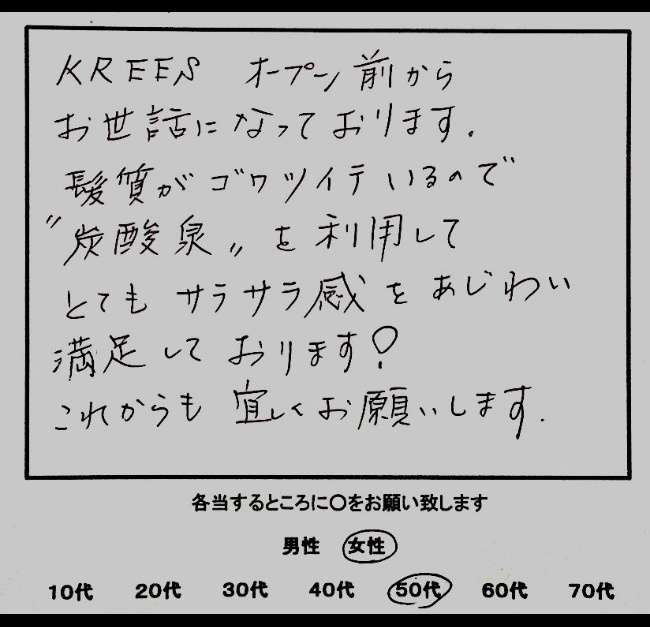 KREES オープン前から
お世話になっております.
髪質がゴワツイテいるので
"炭酸泉"を利用して
とてもサラサラ感をあじわい
満足しております!
これからも宜しくお願いします.
各当するところに〇をお願い致します
男性 女性
10代 20代 30代 40代 50代 60代 70代